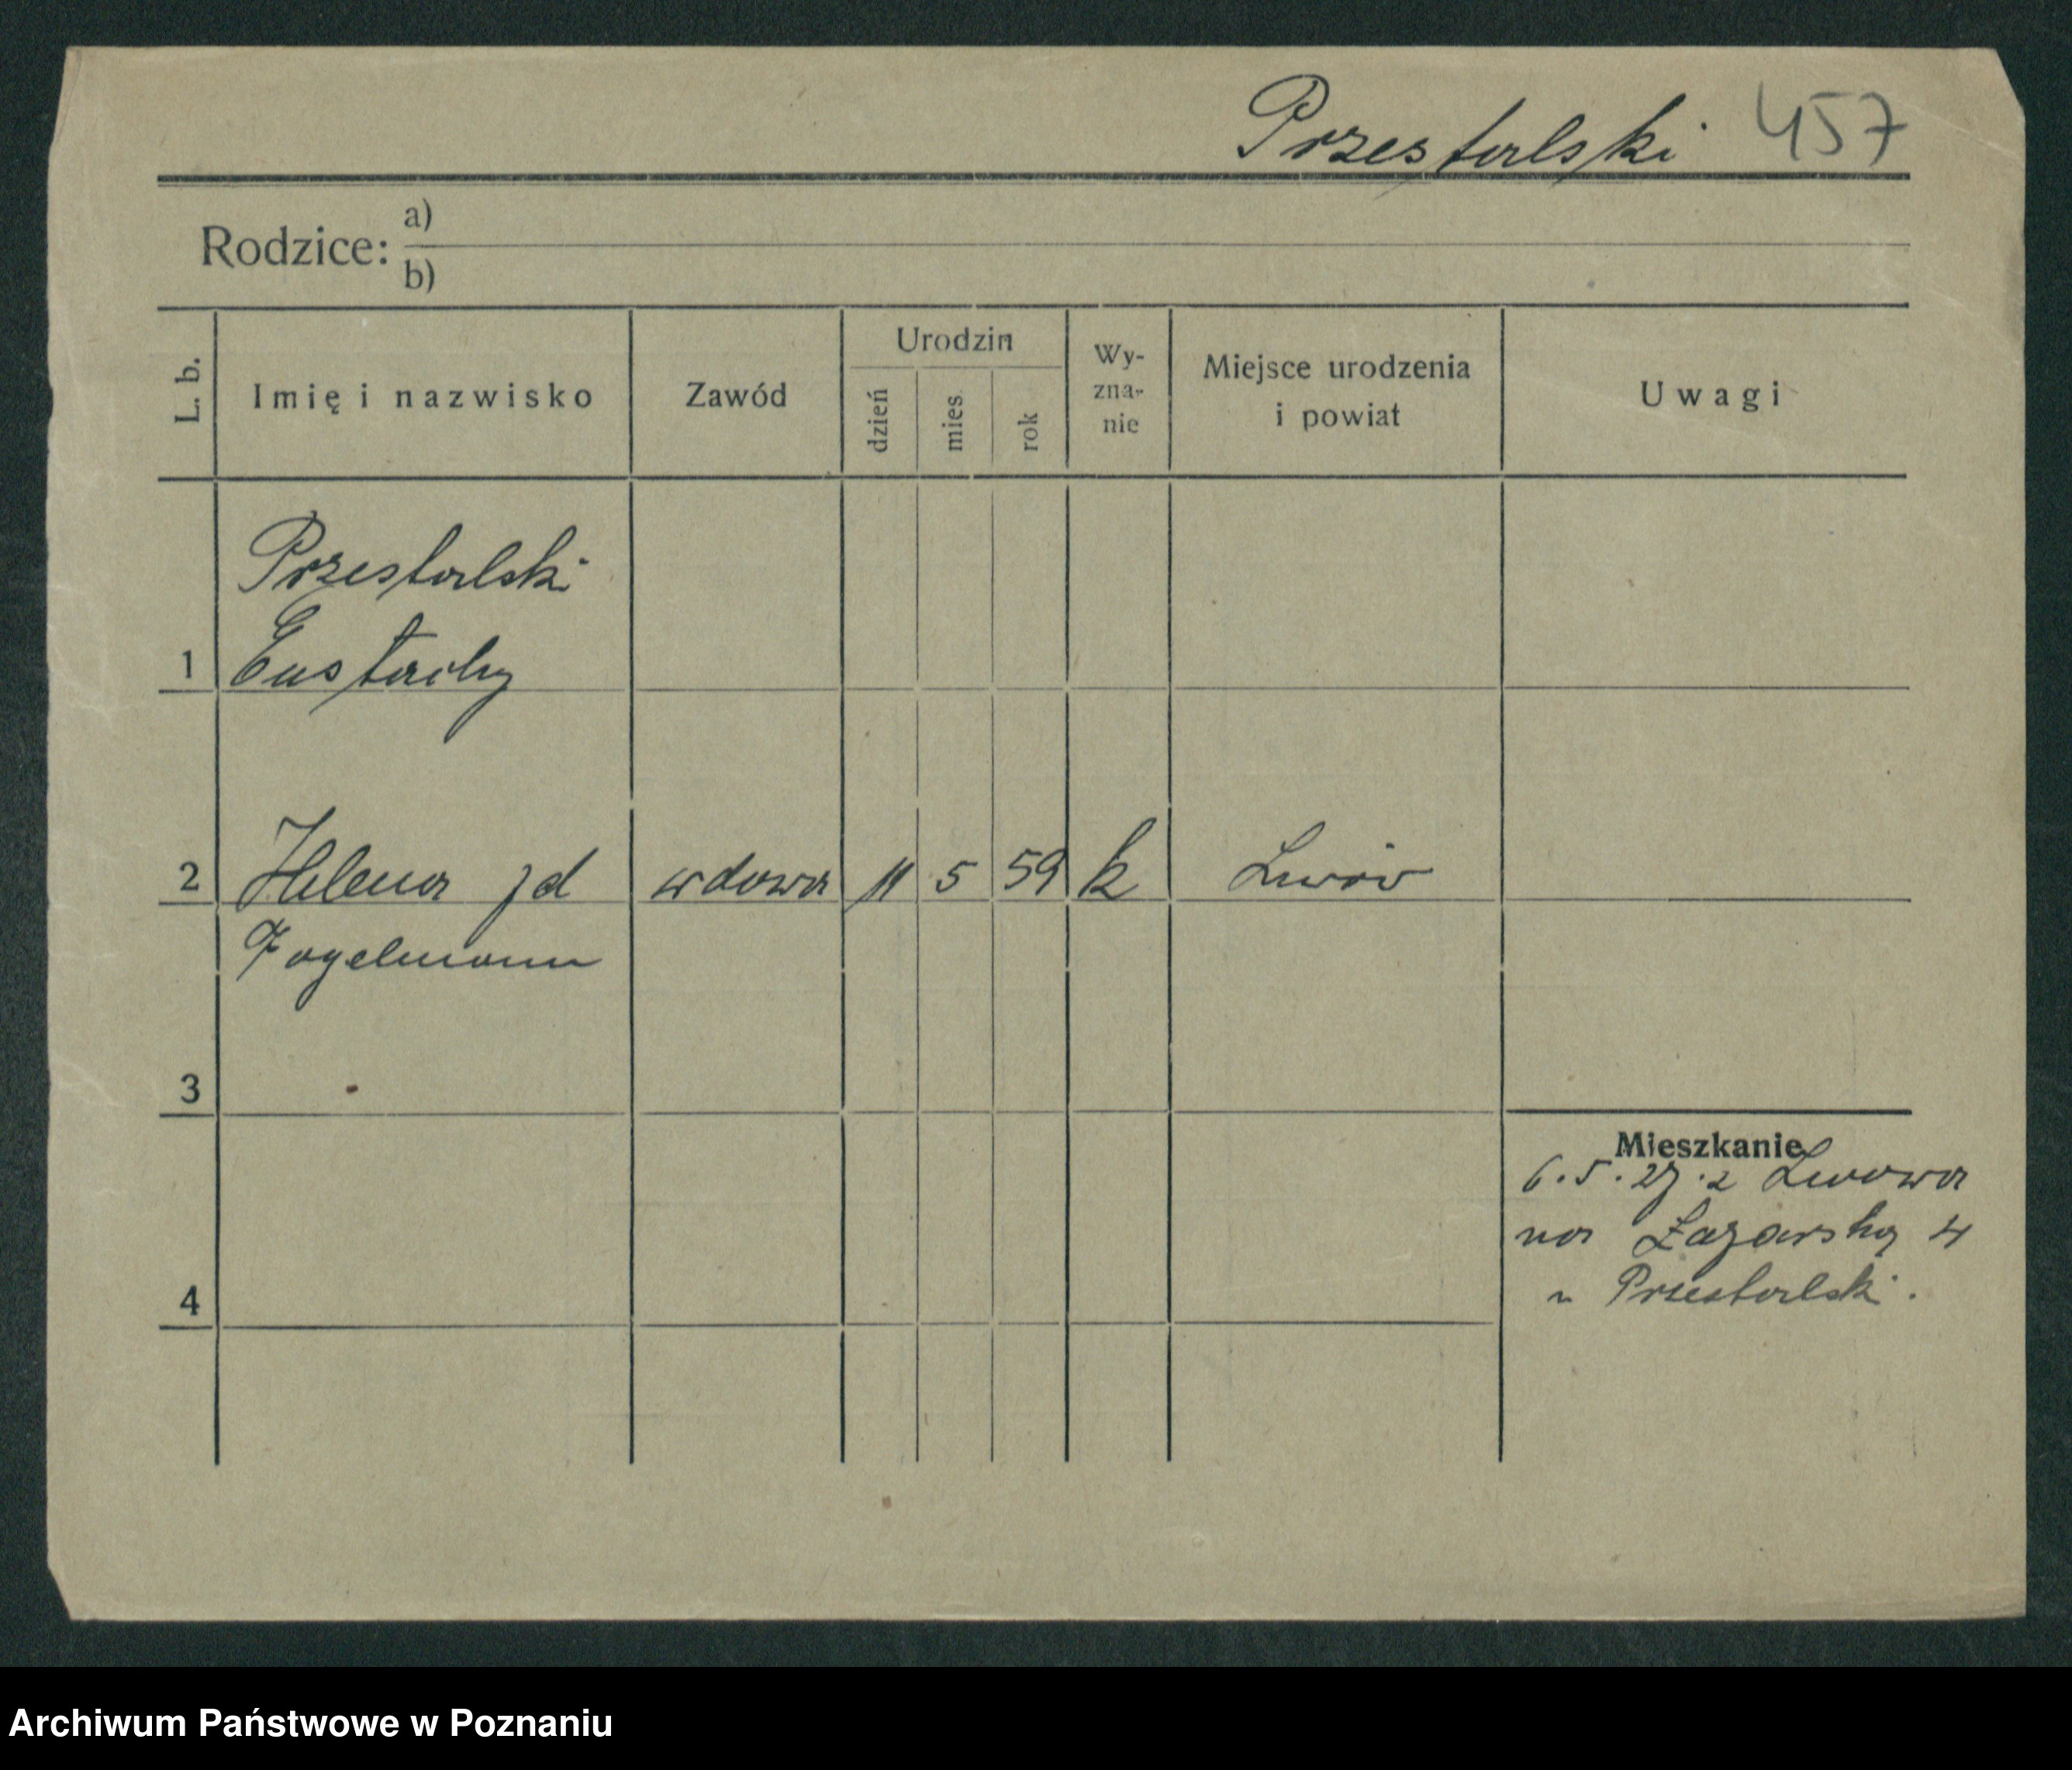 Przestalski 457
Rodzice: a)
b)
L. b.
Imię i nazwisko
Zawód
Urodzin
dzień
mies.
rok
Wy-
zna-
nie
Miejsce urodzenia
i powiat
Uwagi
Przestalski
1 Eustachy
2 Helena jd wdowa 11 5 59 k Lwów
Fogelmann
3
Mieszkanie
6.5.27. z Lwowa
na Łazarską 4
u Przestalski.
4
Archiwum Państwowe w Poznaniu